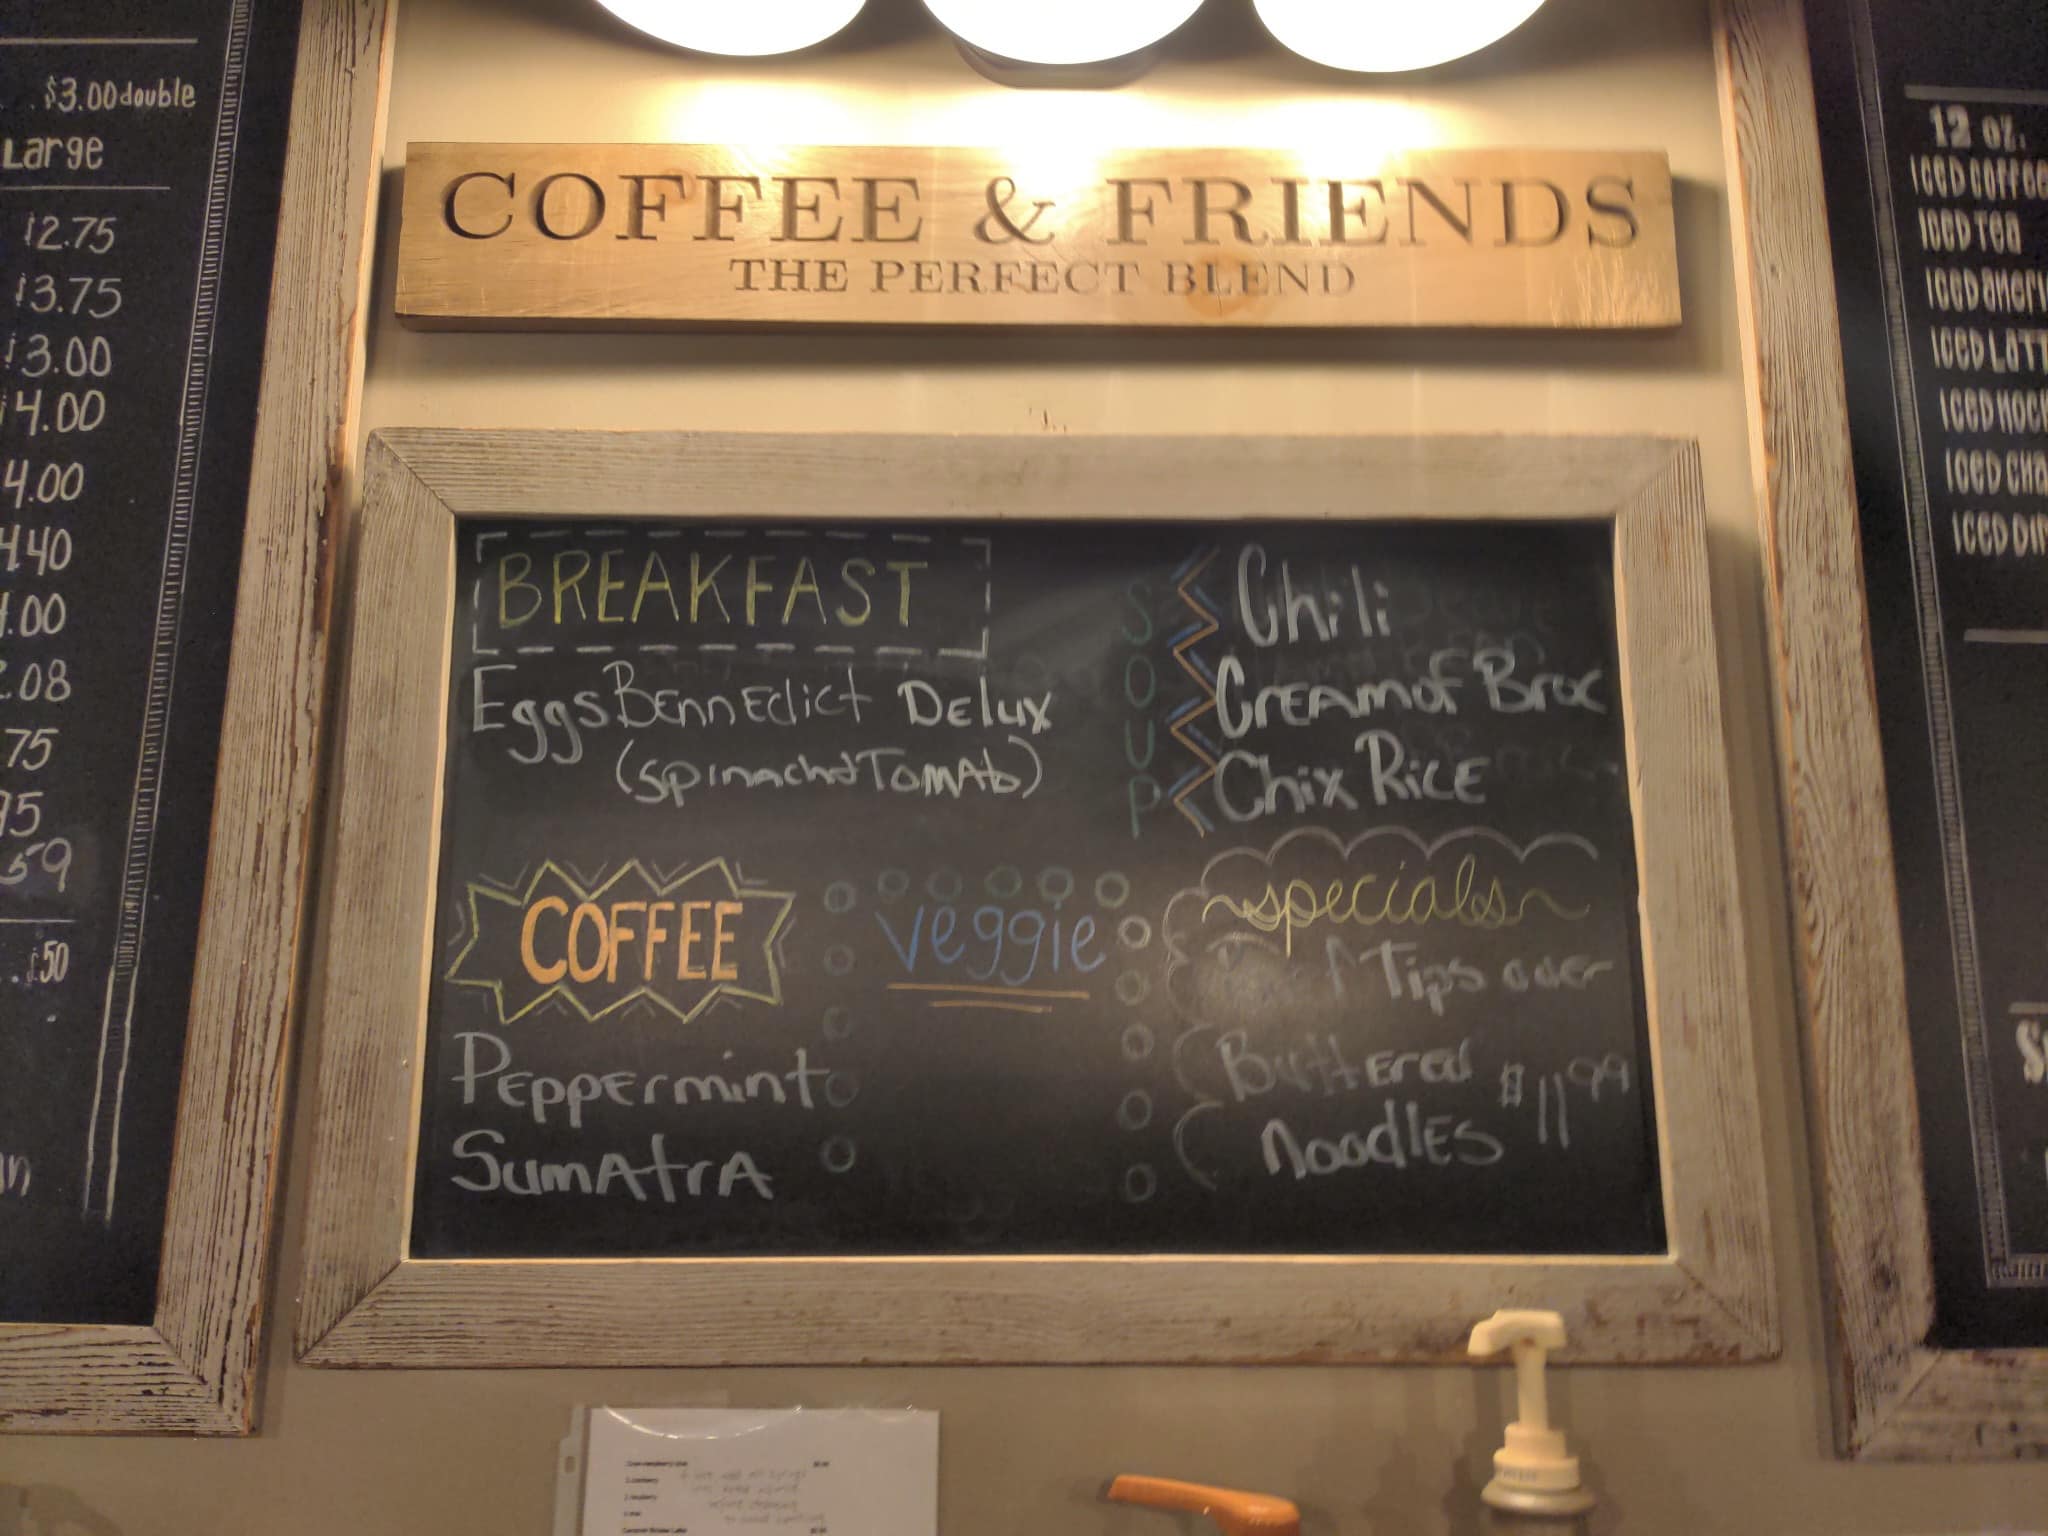 $3.00 double
Large
2.75
3.75
3.00
4.00
4.00
4.40
.00
.08
75
95
59
.50
COFFEE & FRIENDS
THE PERFECT BLEND
BREAKFAST
Eggs Bennedict Delux
(spinach & Tomato)
SOUP
Chili
Cream of Broc
Chix Rice
COFFEE
Peppermint
Sumatra
veggie
~specials~
Tips over
Buttered
Noodles $11.99
12 oz.
ICED COFFEE
ICED TEA
ICED AMERI
ICED LATT
ICED MOC
ICED CHA
ICED DIR